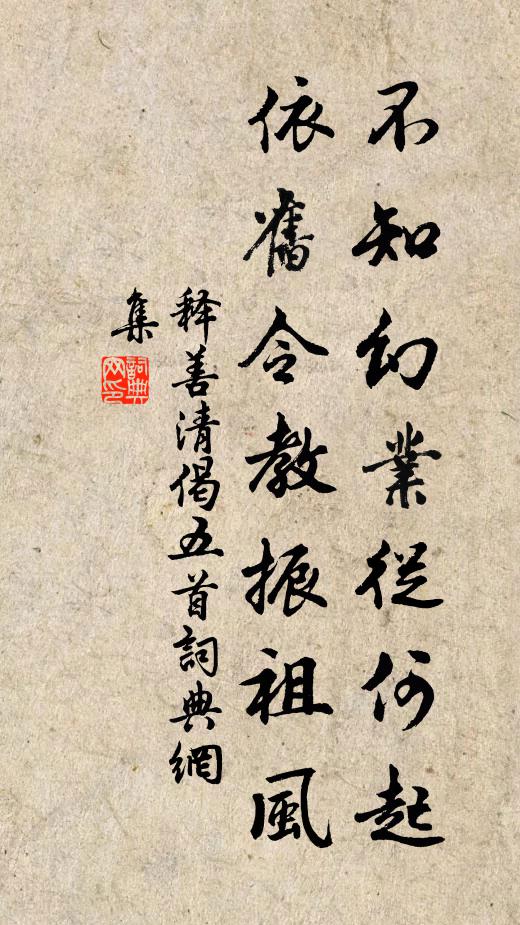 不知幻業從何起
依舊令教振祖風
释善清偈五首詞典網
集
詞典
网印